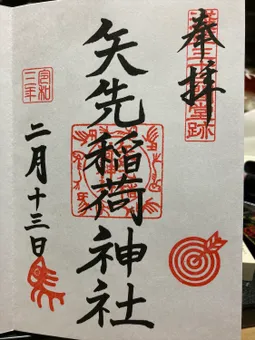 奉拝
矢先稲荷神社
令和三年
二月十三日